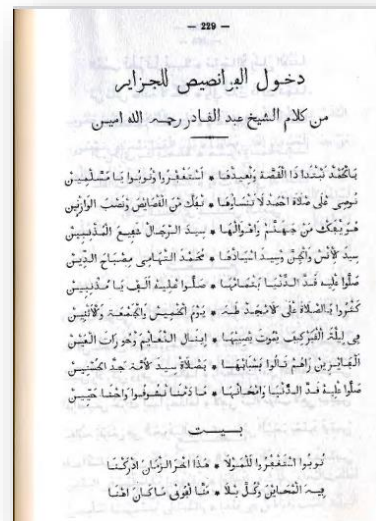 — 229 —
دخول الفرانصيص للجزاير
من كلام الشيخ عبد القادر رحمه الله امين
يالحمد نبتدا ذا القصة ونعيدها * استغفروا وتوبوا يا مسلمين
نوصي على صلاة احمد لا تنساوها * تفك من القصايص ونصب الوازنين
هو يفكك من جهنم واهوالها * سيد الرجال شفيع المذنبين
سيد الانس والجن وسيد اسيادها * محمد التهامي مصباح الدين
صلوا عليه قد الدنيا بثمانها * صلوا عليه الف يا مذنبين
كفروا بالصلاة على لامجد طه * يوم الخميس والجمعة والاثنين
في ليلة القبر كيف يموت يصيبها * ابنال النعايم وحورات العين
الهايزين راهم نالوا بسبابها * بصلاة سيد لامة جد الحسنين
صلوا عليه قد الدنيا وانحاتها * ما دمنا نعرفوا واحنا حيين
بيت
توبوا استغفروا للمولا * هذا اخر الزمان ادركنا
فيه المحاين وكل بلا * منا لفوق ماكان اهنا